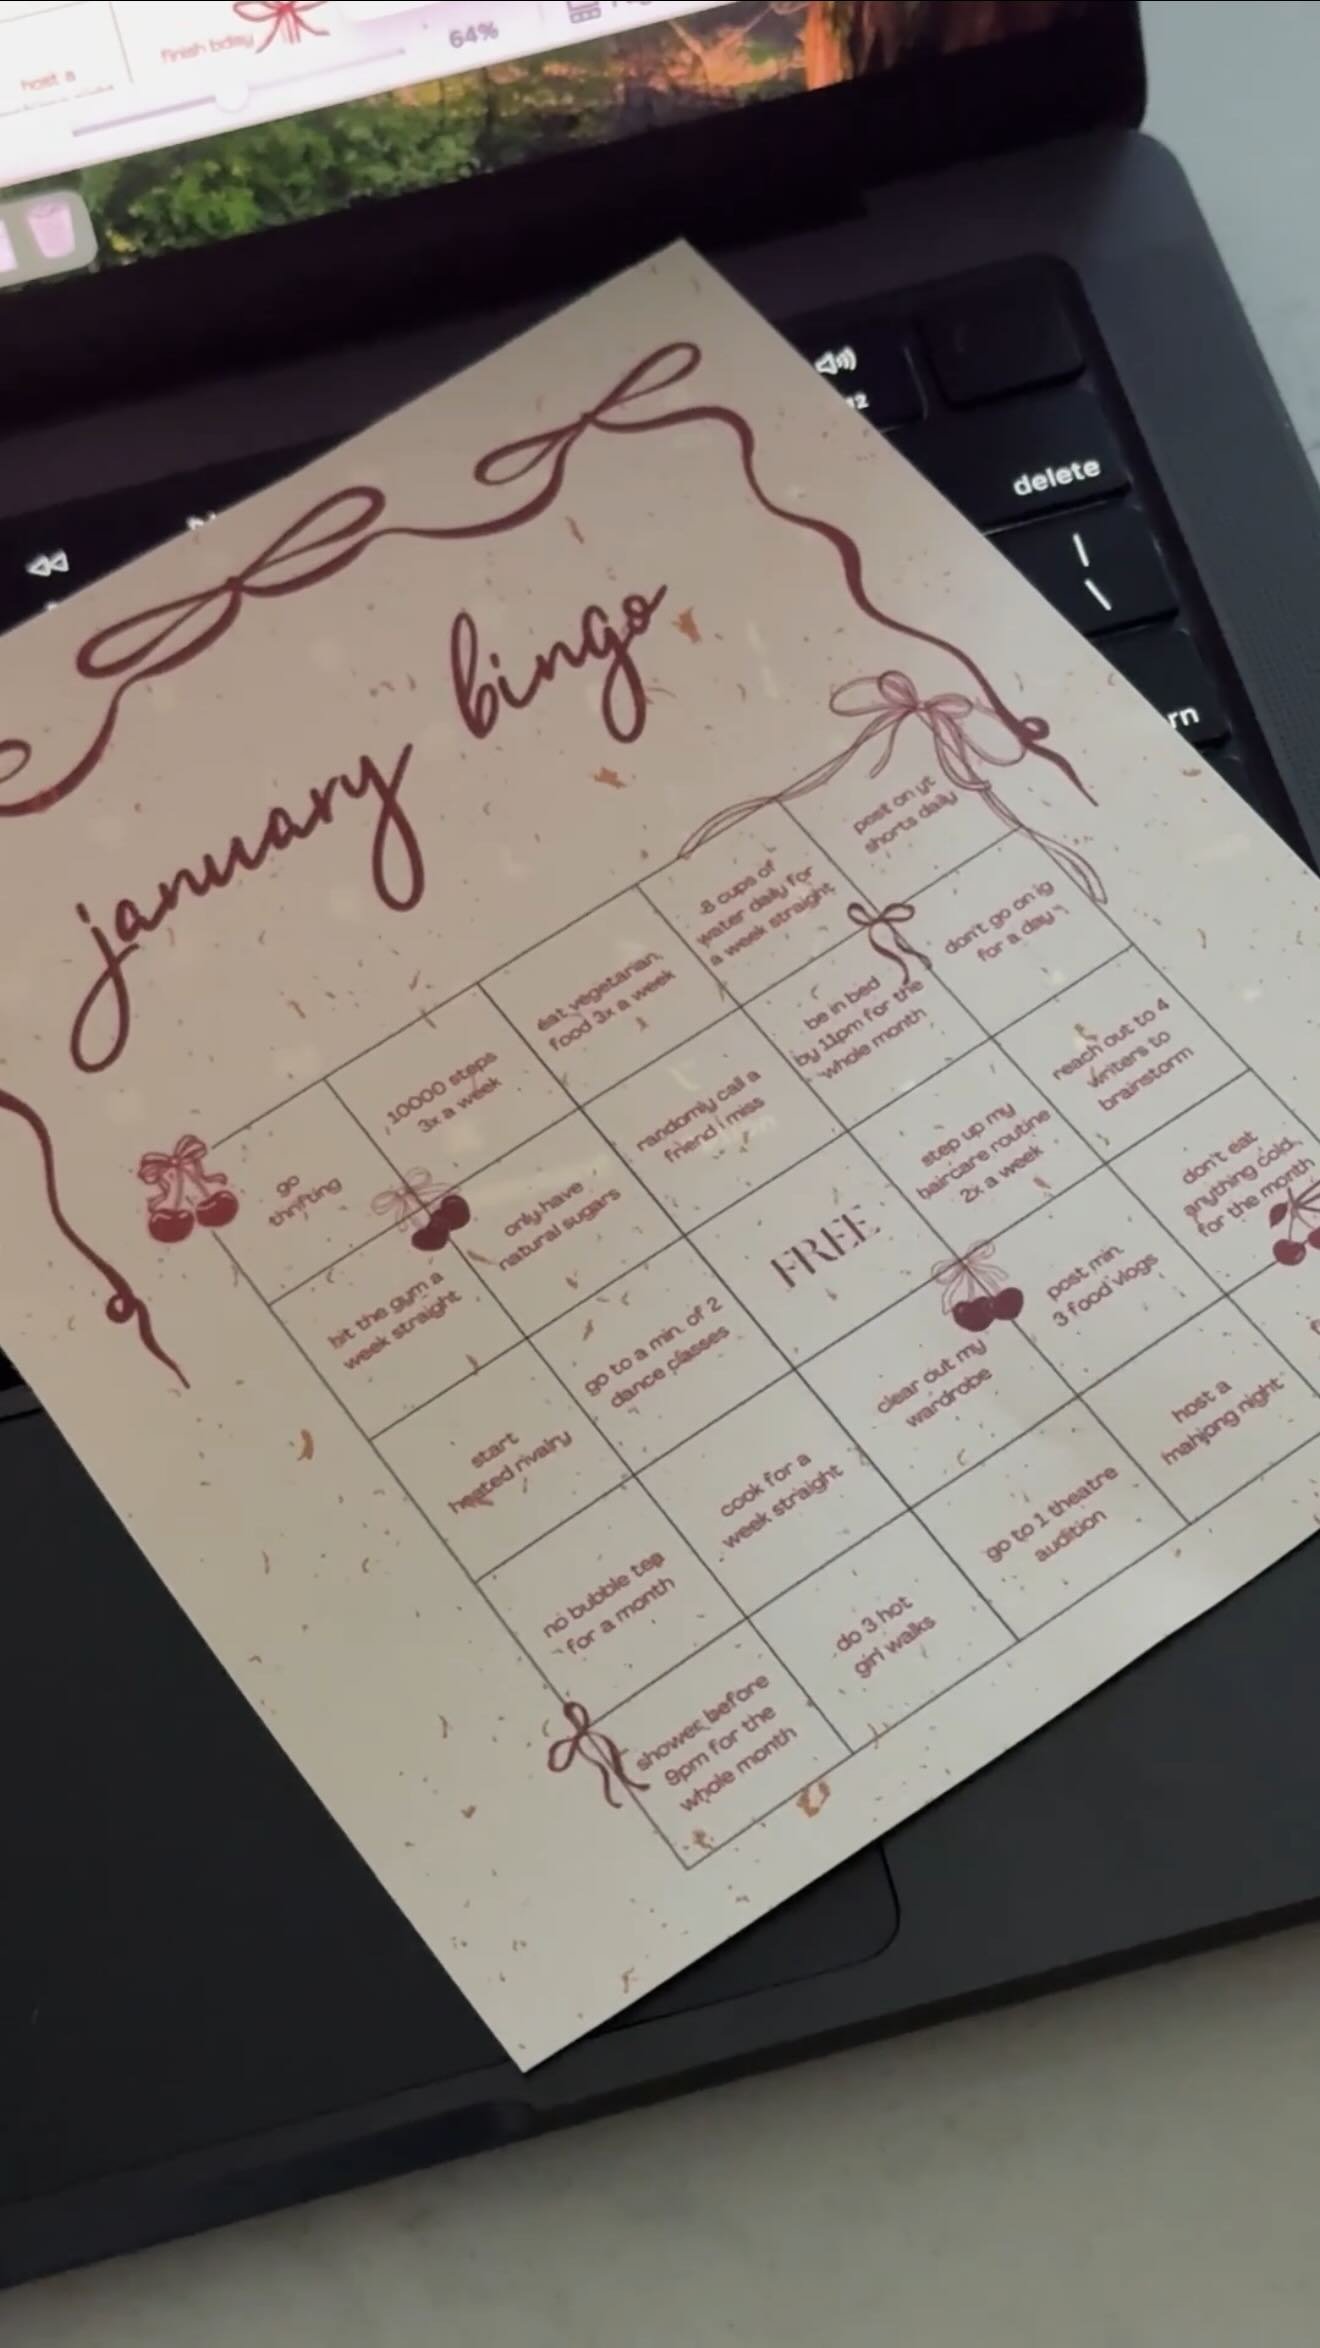 host a
finish bday
64%
12
delete
|
\
rn
january bingo
go
thrifting
10000 steps
3x a week
eat vegetarian
food 3x a week
8 cups of
water daily for
a week straight
post on yt
shorts daily
hit the gym a
week straight
only have
natural sugars
randomly call a
friend i miss
be in bed
by 11pm for the
whole month
don't go on ig
for a day
start
heated rivalry
go to a min. of 2
dance classes
FREE
step up my
haircare routine
2x a week
reach out to 4
writers to
brainstorm
no bubble tea
for a month
cook for a
week straight
clear out my
wardrobe
post min.
3 food vlogs
don't eat
anything cold
for the month
shower before
9pm for the
whole month
do 3 hot
girl walks
go to 1 theatre
audition
host a
mahjong night